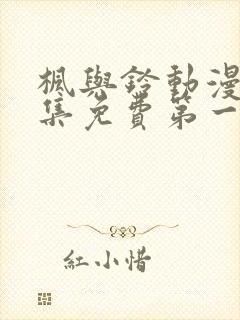 楓與鈴動漫
集免費第一
紅小惜